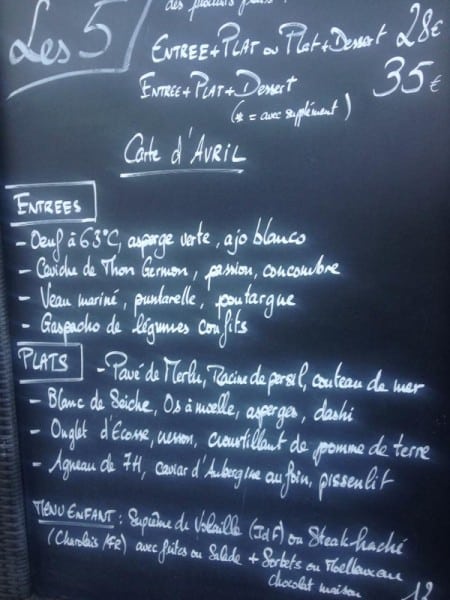 des produits frais !
Les 5
ENTREE + PLAT ou PLAT + DESSERT 28€
ENTREE + PLAT + DESSERT 35€
(* = avec supplément)
Carte d'AVRIL
ENTREES
- Oeuf à 63°C, asperge verte, ajo blanco
- Ceviche de Thon Germon, passion, concombre
- Veau mariné, puntarelle, poutargue
- Gaspacho de légumes confits
PLATS - Pavé de Merlu, Racine de persil, couteau de mer
- Blanc de Seiche, Os à moelle, asperges, dashi
- Onglet d'Ecosse, cresson, croustillant de pomme de terre
- Agneau de 7H, caviar d'Aubergine au foin, pissenlit
MENU ENFANT : Suprême de Volaille (IdF) ou Steak-haché
(Charolais/FR) avec frites ou Salade + Sorbets ou Moelleux au
chocolat maison 12